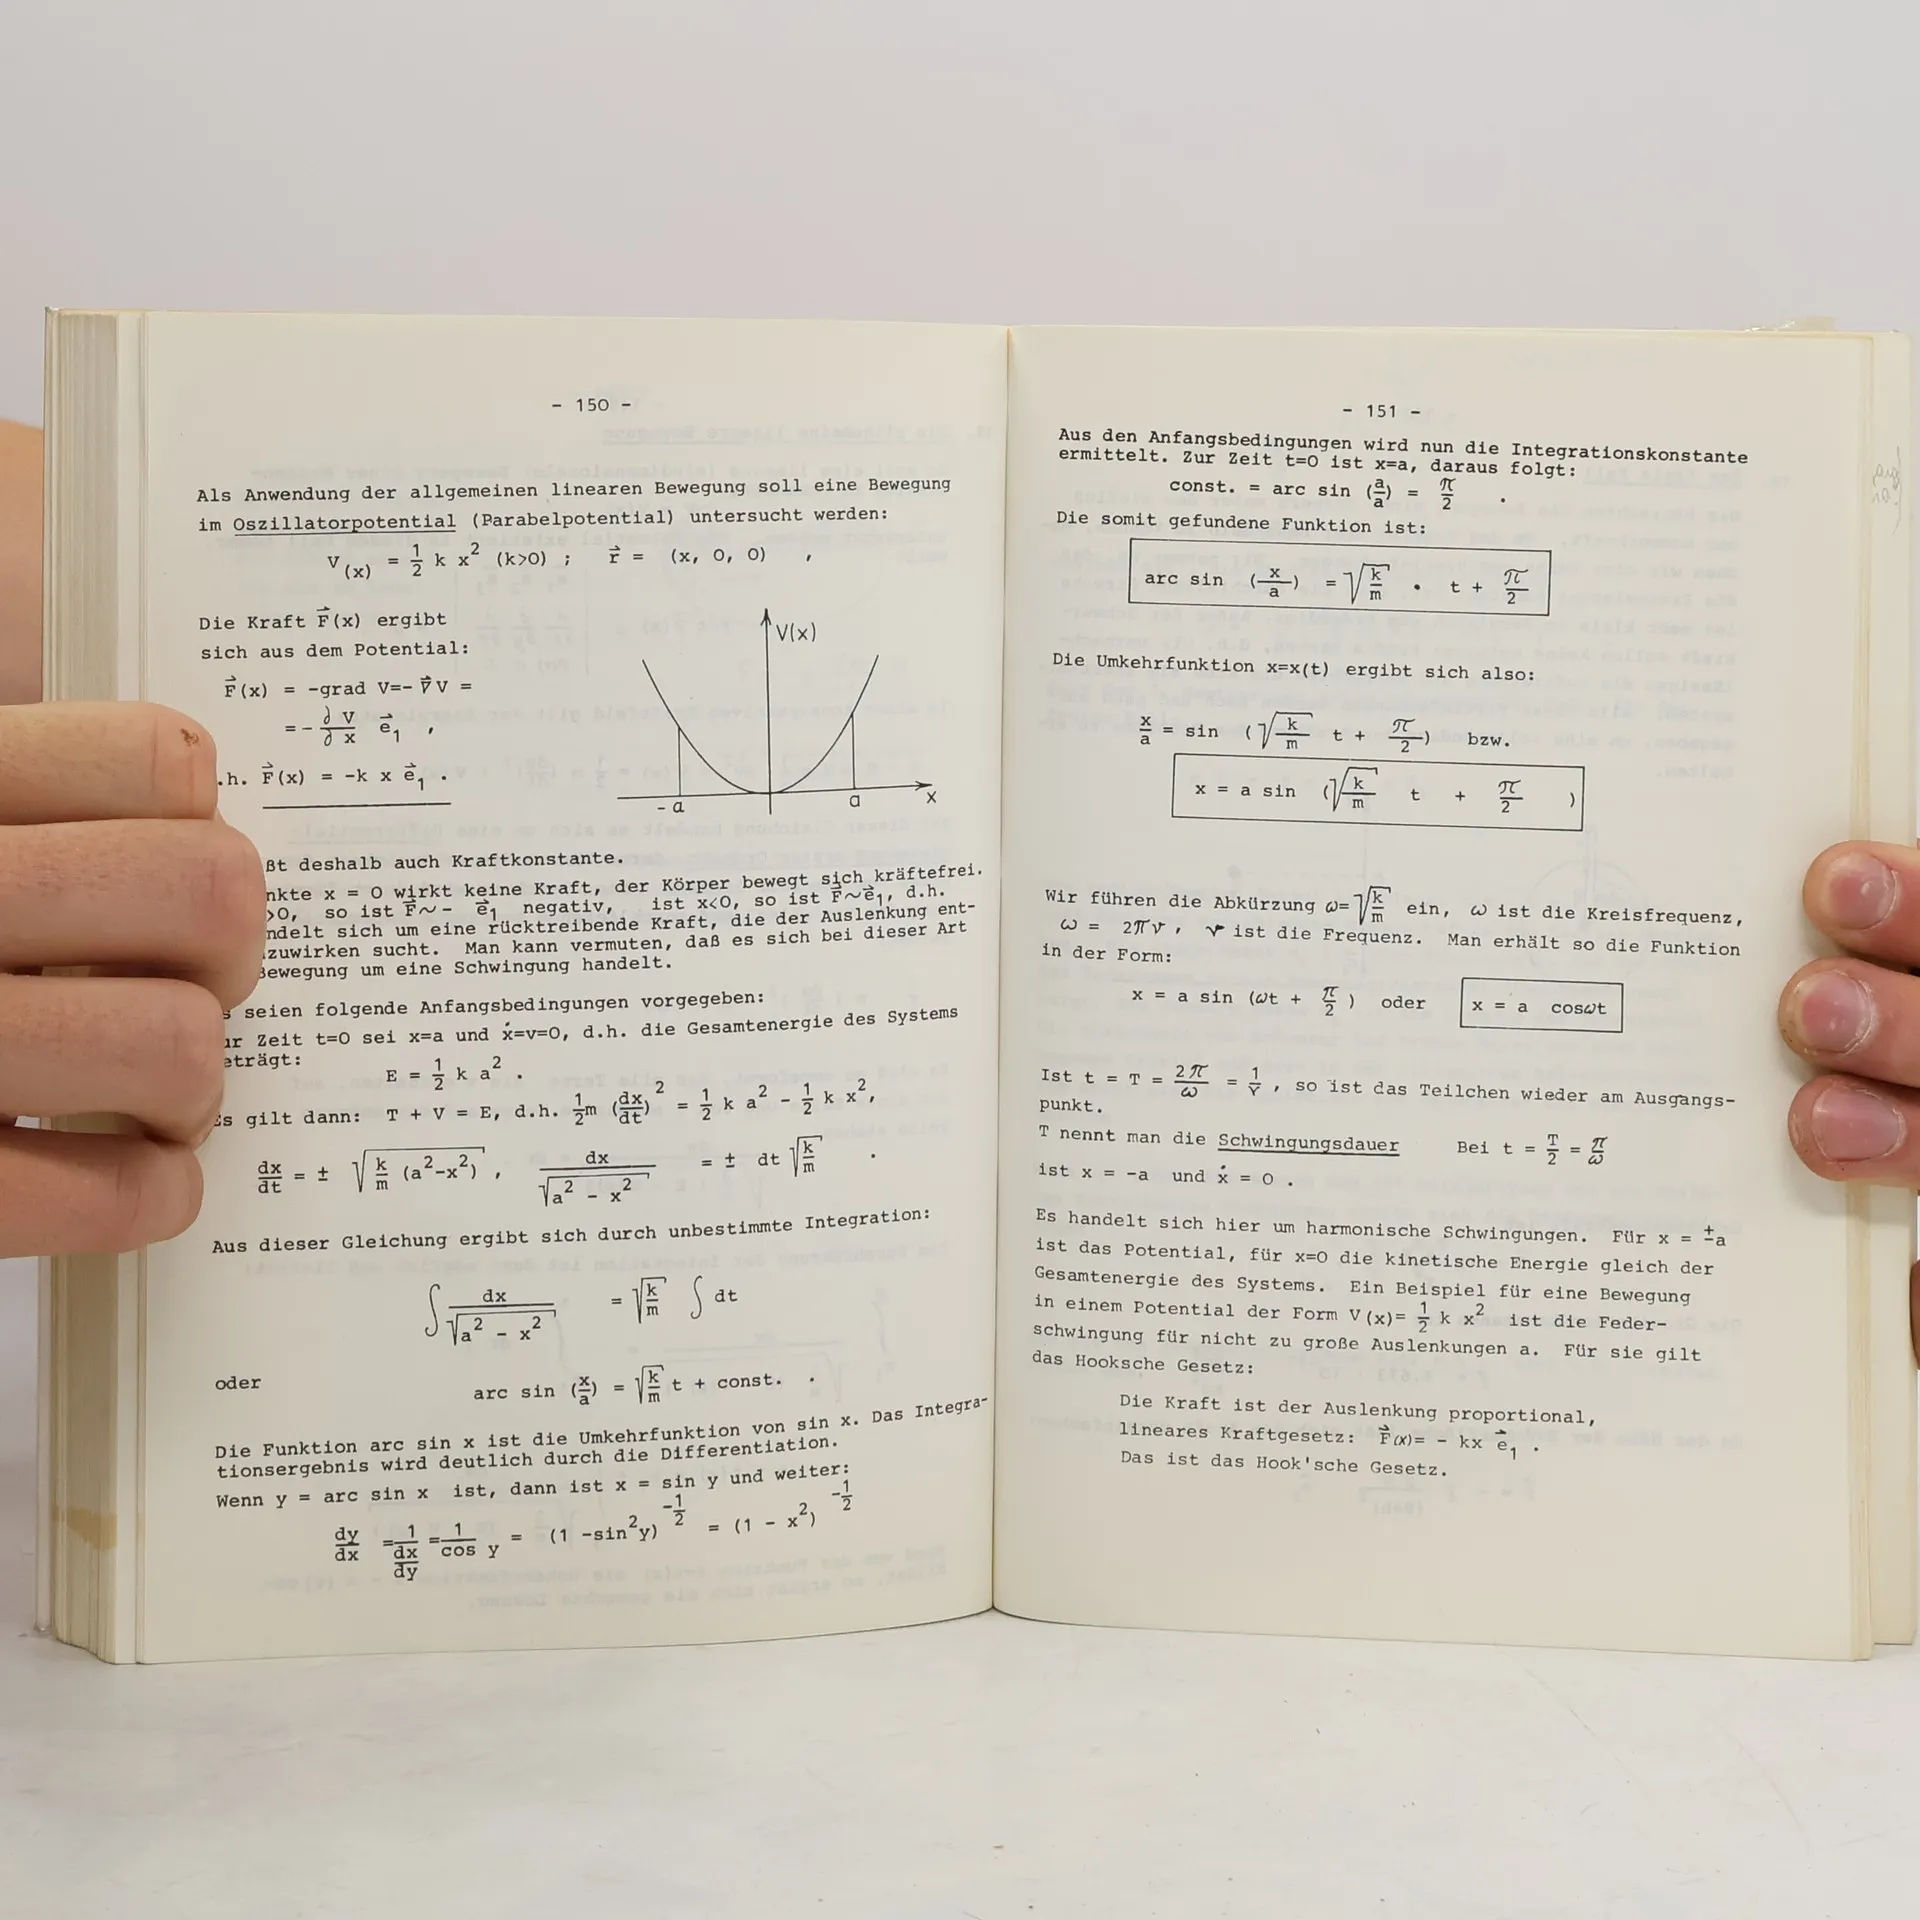 - 150 -
Als Anwendung der allgemeinen linearen Bewegung soll eine Bewegung
im Oszillatorpotential (Parabelpotential) untersucht werden:
V(x) = 1/2 k x² (k>0) ; r⃗ = (x, 0, 0) ,
Die Kraft F⃗(x) ergibt
sich aus dem Potential:
F⃗(x) = -grad V=- ∇⃗V =
= - ∂V/∂x e⃗₁ ,
.h. F⃗(x) = -k x e⃗₁ .
V(x)
- a
a
x
ßt deshalb auch Kraftkonstante.
nkte x = 0 wirkt keine Kraft, der Körper bewegt sich kräftefrei.
>0, so ist F⃗~- e⃗₁ negativ, ist x<0, so ist F⃗~e⃗₁, d.h.
ndelt sich um eine rücktreibende Kraft, die der Auslenkung ent-
zuwirken sucht. Man kann vermuten, daß es sich bei dieser Art
Bewegung um eine Schwingung handelt.
s seien folgende Anfangsbedingungen vorgegeben:
ur Zeit t=0 sei x=a und ẋ=v=0, d.h. die Gesamtenergie des Systems
eträgt:
E = 1/2 k a² .
Es gilt dann: T + V = E, d.h. 1/2m (dx/dt)² = 1/2 k a² - 1/2 k x²,
dx/dt = ± √(k/m (a²-x²)) , dx/√(a² - x²) = ± dt √(k/m) .
Aus dieser Gleichung ergibt sich durch unbestimmte Integration:
∫ dx/√(a² - x²) = √(k/m) ∫ dt
oder
arc sin (x/a) = √(k/m) t + const. .
Die Funktion arc sin x ist die Umkehrfunktion von sin x. Das Integra-
tionsergebnis wird deutlich durch die Differentiation.
Wenn y = arc sin x ist, dann ist x = sin y und weiter:
dy/dx = 1/(dx/dy) = 1/cos y = (1 -sin²y)^(-1/2) = (1 - x²)^(-1/2)
- 151 -
Aus den Anfangsbedingungen wird nun die Integrationskonstante
ermittelt. Zur Zeit t=0 ist x=a, daraus folgt:
const. = arc sin (a/a) = π/2 .
Die somit gefundene Funktion ist:
arc sin (x/a) = √(k/m) · t + π/2
Die Umkehrfunktion x=x(t) ergibt sich also:
x/a = sin (√(k/m) t + π/2) bzw.
x = a sin (√(k/m) t + π/2 )
Wir führen die Abkürzung ω=√(k/m) ein, ω ist die Kreisfrequenz,
ω = 2πν, ν ist die Frequenz. Man erhält so die Funktion
in der Form:
x = a sin (ωt + π/2 ) oder x = a cosωt
Ist t = T = 2π/ω = 1/ν , so ist das Teilchen wieder am Ausgangs-
punkt.
T nennt man die Schwingungsdauer Bei t = T/2 = π/ω
ist x = -a und ẋ = 0 .
Es handelt sich hier um harmonische Schwingungen. Für x = ±a
ist das Potential, für x=0 die kinetische Energie gleich der
Gesamtenergie des Systems. Ein Beispiel für eine Bewegung
in einem Potential der Form V(x)= 1/2 k x² ist die Feder-
schwingung für nicht zu große Auslenkungen a. Für sie gilt
das Hooksche Gesetz:
Die Kraft ist der Auslenkung proportional,
lineares Kraftgesetz: F⃗(x)= - kx e⃗₁ .
Das ist das Hook'sche Gesetz.